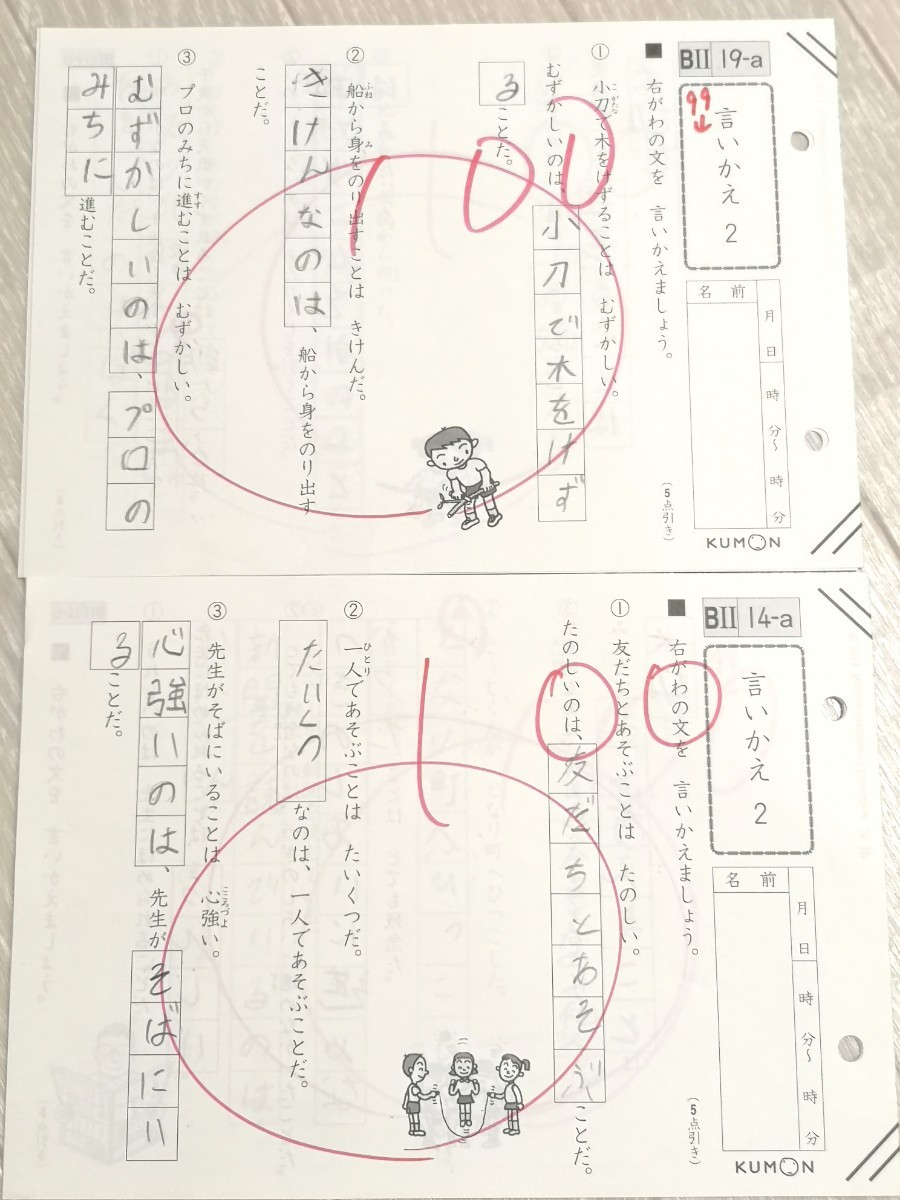 BII 19-a
99
言いかえ 2
名前
月 日
時 分〜 時 分
KUMON
■ 右がわの文を 言いかえましょう。
(5点引き)
100
① 小刀で木をけずることは むずかしい。
こがたな
むずかしいのは、小刀で木をけず
ることだ。
② 船から身をのり出すことは きけんだ。
ふね み
きけんなのは、船から身をのり出す
ことだ。
③ プロのみちに進むことは むずかしい。
すす
むずかしいのは、プロの
みちに進むことだ。
BII 14-a
言いかえ 2
名前
月 日
時 分〜 時 分
KUMON
■ 右がわの文を 言いかえましょう。
(5点引き)
100
① 友だちとあそぶことは たのしい。
たのしいのは、友だちとあそぶことだ。
② 一人であそぶことは たいくつだ。
ひとり
たいくつなのは、一人であそぶことだ。
③ 先生がそばにいることは 心強い。
こころづよ
心強いのは、先生がそばにい
ることだ。